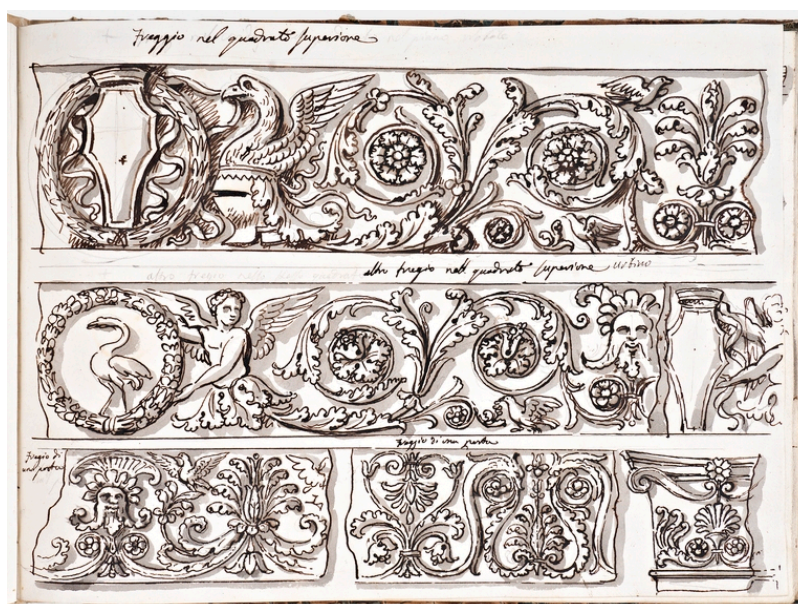 Freggio nel quadrato superiore
altro fregio nell quadrato superiore urbino
fregio di una porta
fregio di
una porta